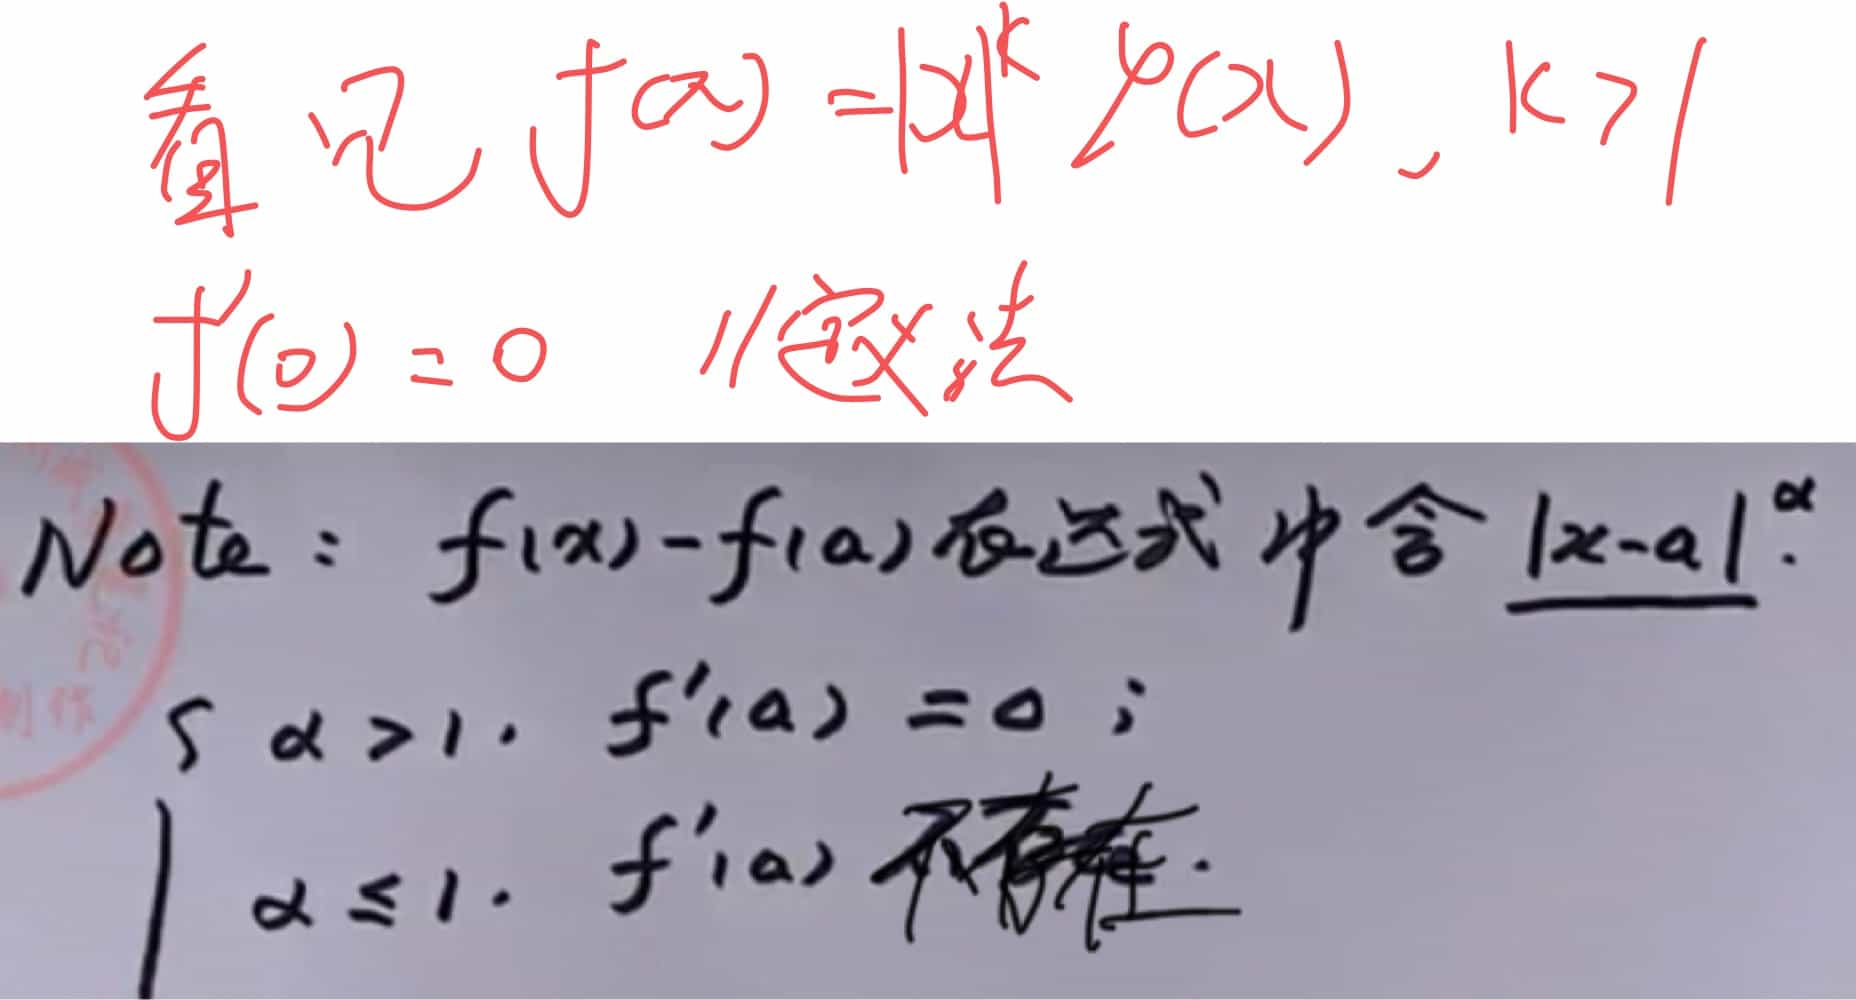 看见 f(x) = |x|^k φ(x), k > 1
f'(0) = 0 //定义法
Note: f(x) - f(a) 表达式中含 |x-a|^α.
{ α > 1. f'(a) = 0;
α ≤ 1. f'(a) 不存在.
制作